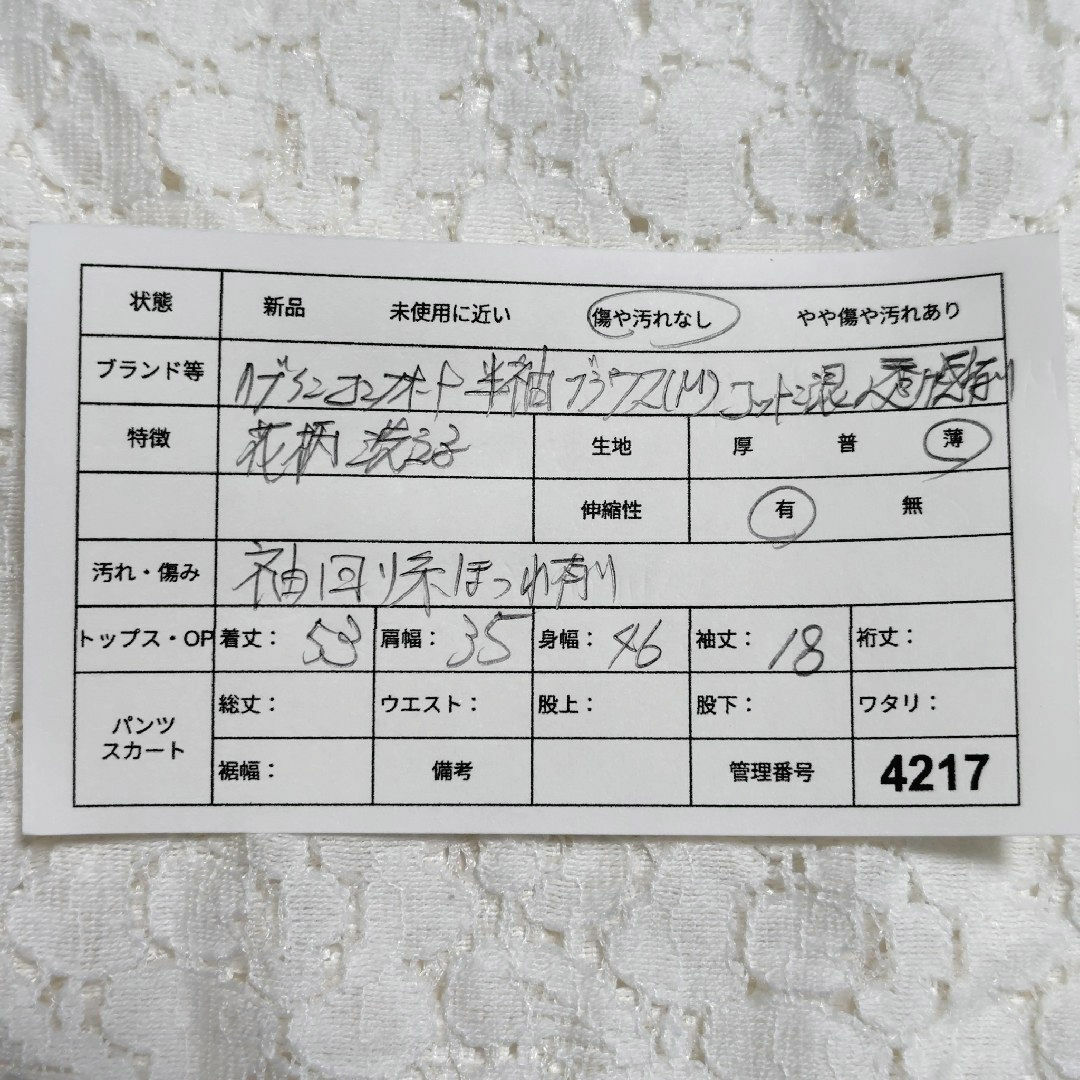 状態 新品 未使用に近い 傷や汚れなし やや傷や汚れあり
ブランド等 半袖ブラウス(M) コットン混 透け感有り
特徴 花柄 生地 厚 普 薄
伸縮性 有 無
汚れ・傷み 袖回り糸ほつれ有り
トップス・OP 着丈: 53 肩幅: 35 身幅: 46 袖丈: 18 裄丈:
パンツ スカート 総丈: ウエスト: 股上: 股下: ワタリ:
裾幅: 備考 管理番号 4217